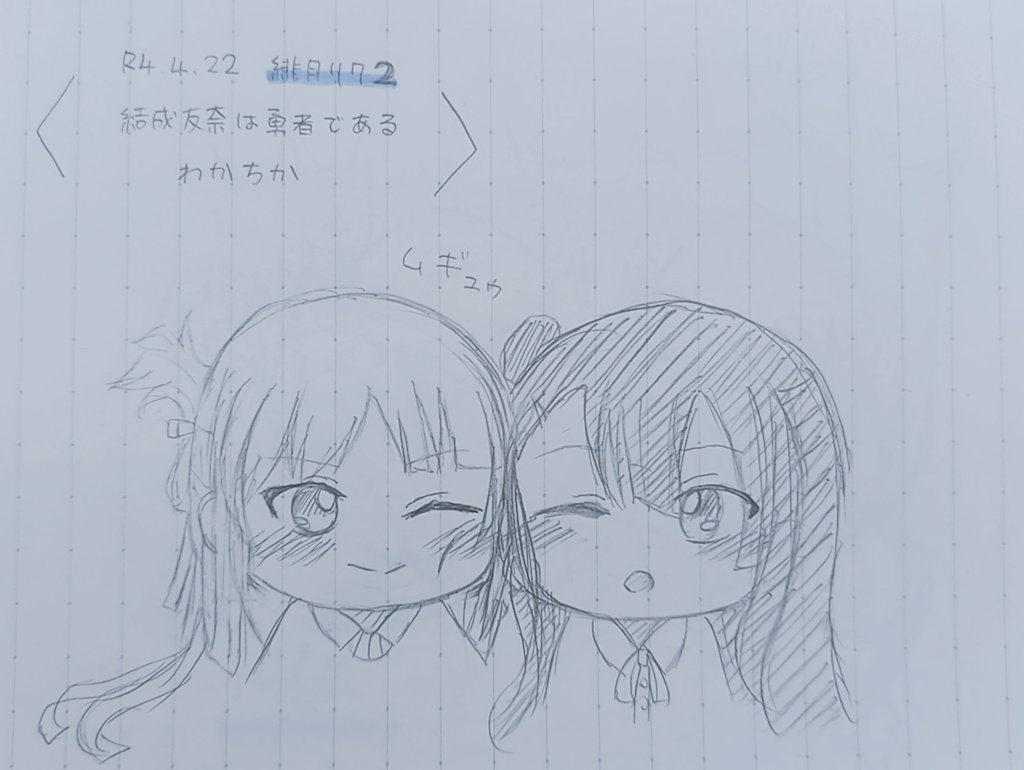 R4.4.22 緋月リク2
結成友奈は勇者である
わかちか
ムギュゥ